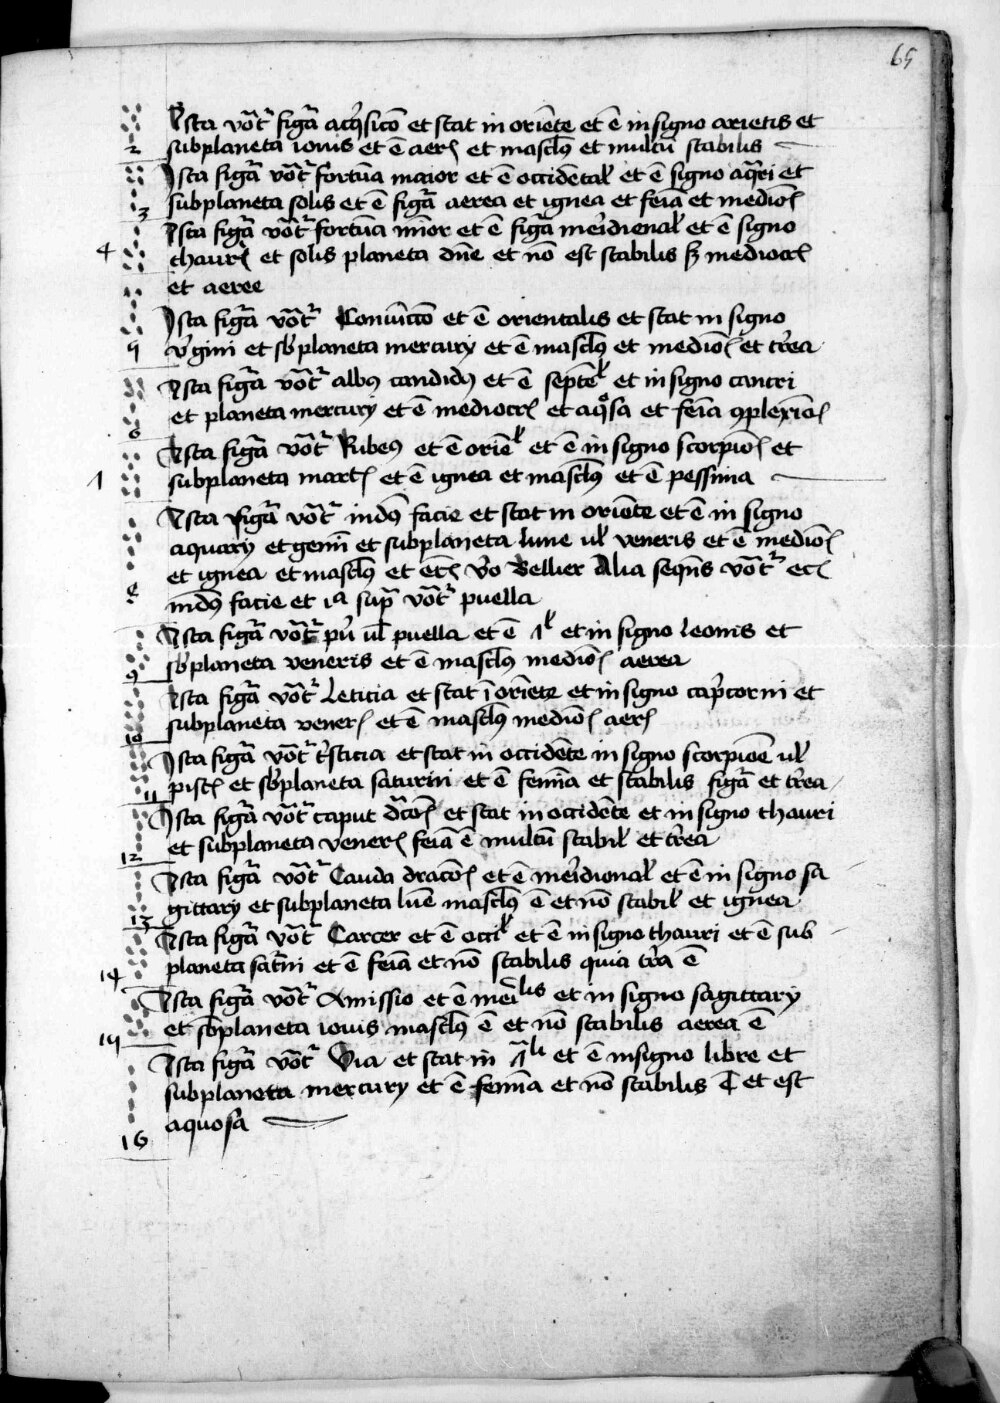 65
Ista voc̃t̃ figr̃a acq̃sico᷈ et stat in orie᷈te et ē in signo arietis et
2 subplaneta iovis et ē aerꝭ et mascl̃9 et multu᷈ stabilis
Ista figr̃a voc̃t̃ fortu᷈a maior et ē occide᷈tal᷈ et ē signo aq̃ri et
3 subplaneta solis et ē figr̃a aerea et ignea et fei᷈a et medioc᷈
Ista figr̃a voc̃t̃ fortu᷈a mi᷈or et ē figr̃a me᷈idienal᷈ et ē signo
4 thaurꝭ et solis planeta dn᷈e et no᷈ est stabilis sꝫ mediocrꝭ
et aeree
Ista figr̃a voc̃t̃ Coniu᷈cco᷈ et ē orientalis et stat in signo
5 v᷈gini et sb᷈planeta mercury et ē mascl̃9 et medioc᷈ et t᷈rea
Ista figr̃a voc̃t̃ alb9 candid9 et ē septe᷈l᷈ et in signo cancri
6 et planeta mercury et ē mediocrꝭ et aq̊sa et fei᷈a 9plexio᷈ꝭ
Ista figr̃a voc̃t̃ Rube9 et ē orie᷈l᷈ et ē in signo scorpioꝭ et
1 subplaneta martꝭ et ē ignea et mascl̃9 et ē pessima
Ista figr̃a voc̃t̃ ind9 facie et stat in orie᷈te et ē in signo
aquary et gemi᷈ et subplaneta lune ul᷈ veneris et ē medioc᷈
et ignea et mascl̃9 et etꝭ v᷈o Bellier Alia seqn᷈s voc̃t̃ etꝭ
8 ind9 facie et ia sup᷈ voc̃t̃ puella
Ista figr̃a voc̃t̃ pu᷈ ul᷈ puella et ē et in signo leonis et
9 sb᷈planeta veneris et ē mascl̃9 medioc᷈ aerea
Ista figr̃a voc̃t̃ Leticia et stat i᷈ orie᷈te et in signo cap᷈corni et
10 subplaneta venerꝭ et ē mascl̃9 medioc᷈ aerꝭ
Ista figr̃a voc̃t̃ t᷈sticia et stat in occide᷈te in signo scorpioe᷈ ul᷈
11 piscꝭ et sb᷈planeta saturni et ē femi᷈a et stabilis figr̃a et t᷈rea
Ista figr̃a voc̃t̃ caput dr̃co᷈ꝭ et stat in occide᷈te et in signo thauri
12 et subplaneta venerꝭ fei᷈a ē multu᷈ stabil᷈ et t᷈rea
Ista figr̃a voc̃t̃ Cauda draco᷈ꝭ et ē me᷈idional᷈ et ē in signo sa
13 gittary et subplaneta lu᷈e mascl̃9 ē et no᷈ stabil᷈ et ignea
Ista figr̃a voc̃t̃ Carcer et ē occil᷈ et ē in signo thauri et ē sub
14 planeta sat᷈ni et ē fei᷈a et no᷈ stabilis quia t᷈ra ē
Ista figr̃a voc̃t̃ Amissio et ē mei᷈lis et in signo sagittary
15 et sb᷈planeta iovis mascl̃9 ē et no᷈ stabilis aerea ē
Ista figr̃a voc̃t̃ Via et stat in et ē in signo libre et
subplaneta mercury et ē femi᷈a et no᷈ stabilis et est
16 aquosa